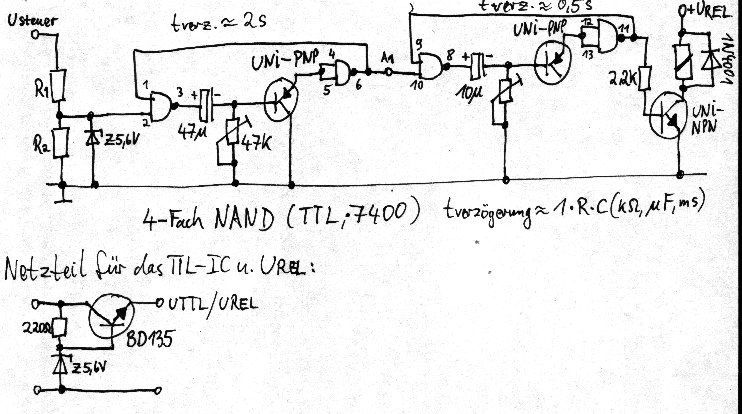 Usteuer
tverz. ≈ 2s
tverz. ≈ 0,5s
+UREL
R1
R2
Z5,6V
1
2
3
+
-
47µ
47K
UNi-PNP
4
5
6
A1
9
10
8
+
-
10µ
UNi-PNP
12
13
11
2.2K
1N4001
UNi-
NPN
4-Fach NAND (TTL;7400)
tverzögerung ≈ 1·R·C (kΩ, µF, ms)
Netzteil für das TTL-IC u. UREL:
220Ω
Z5,6V
BD135
UTTL/UREL